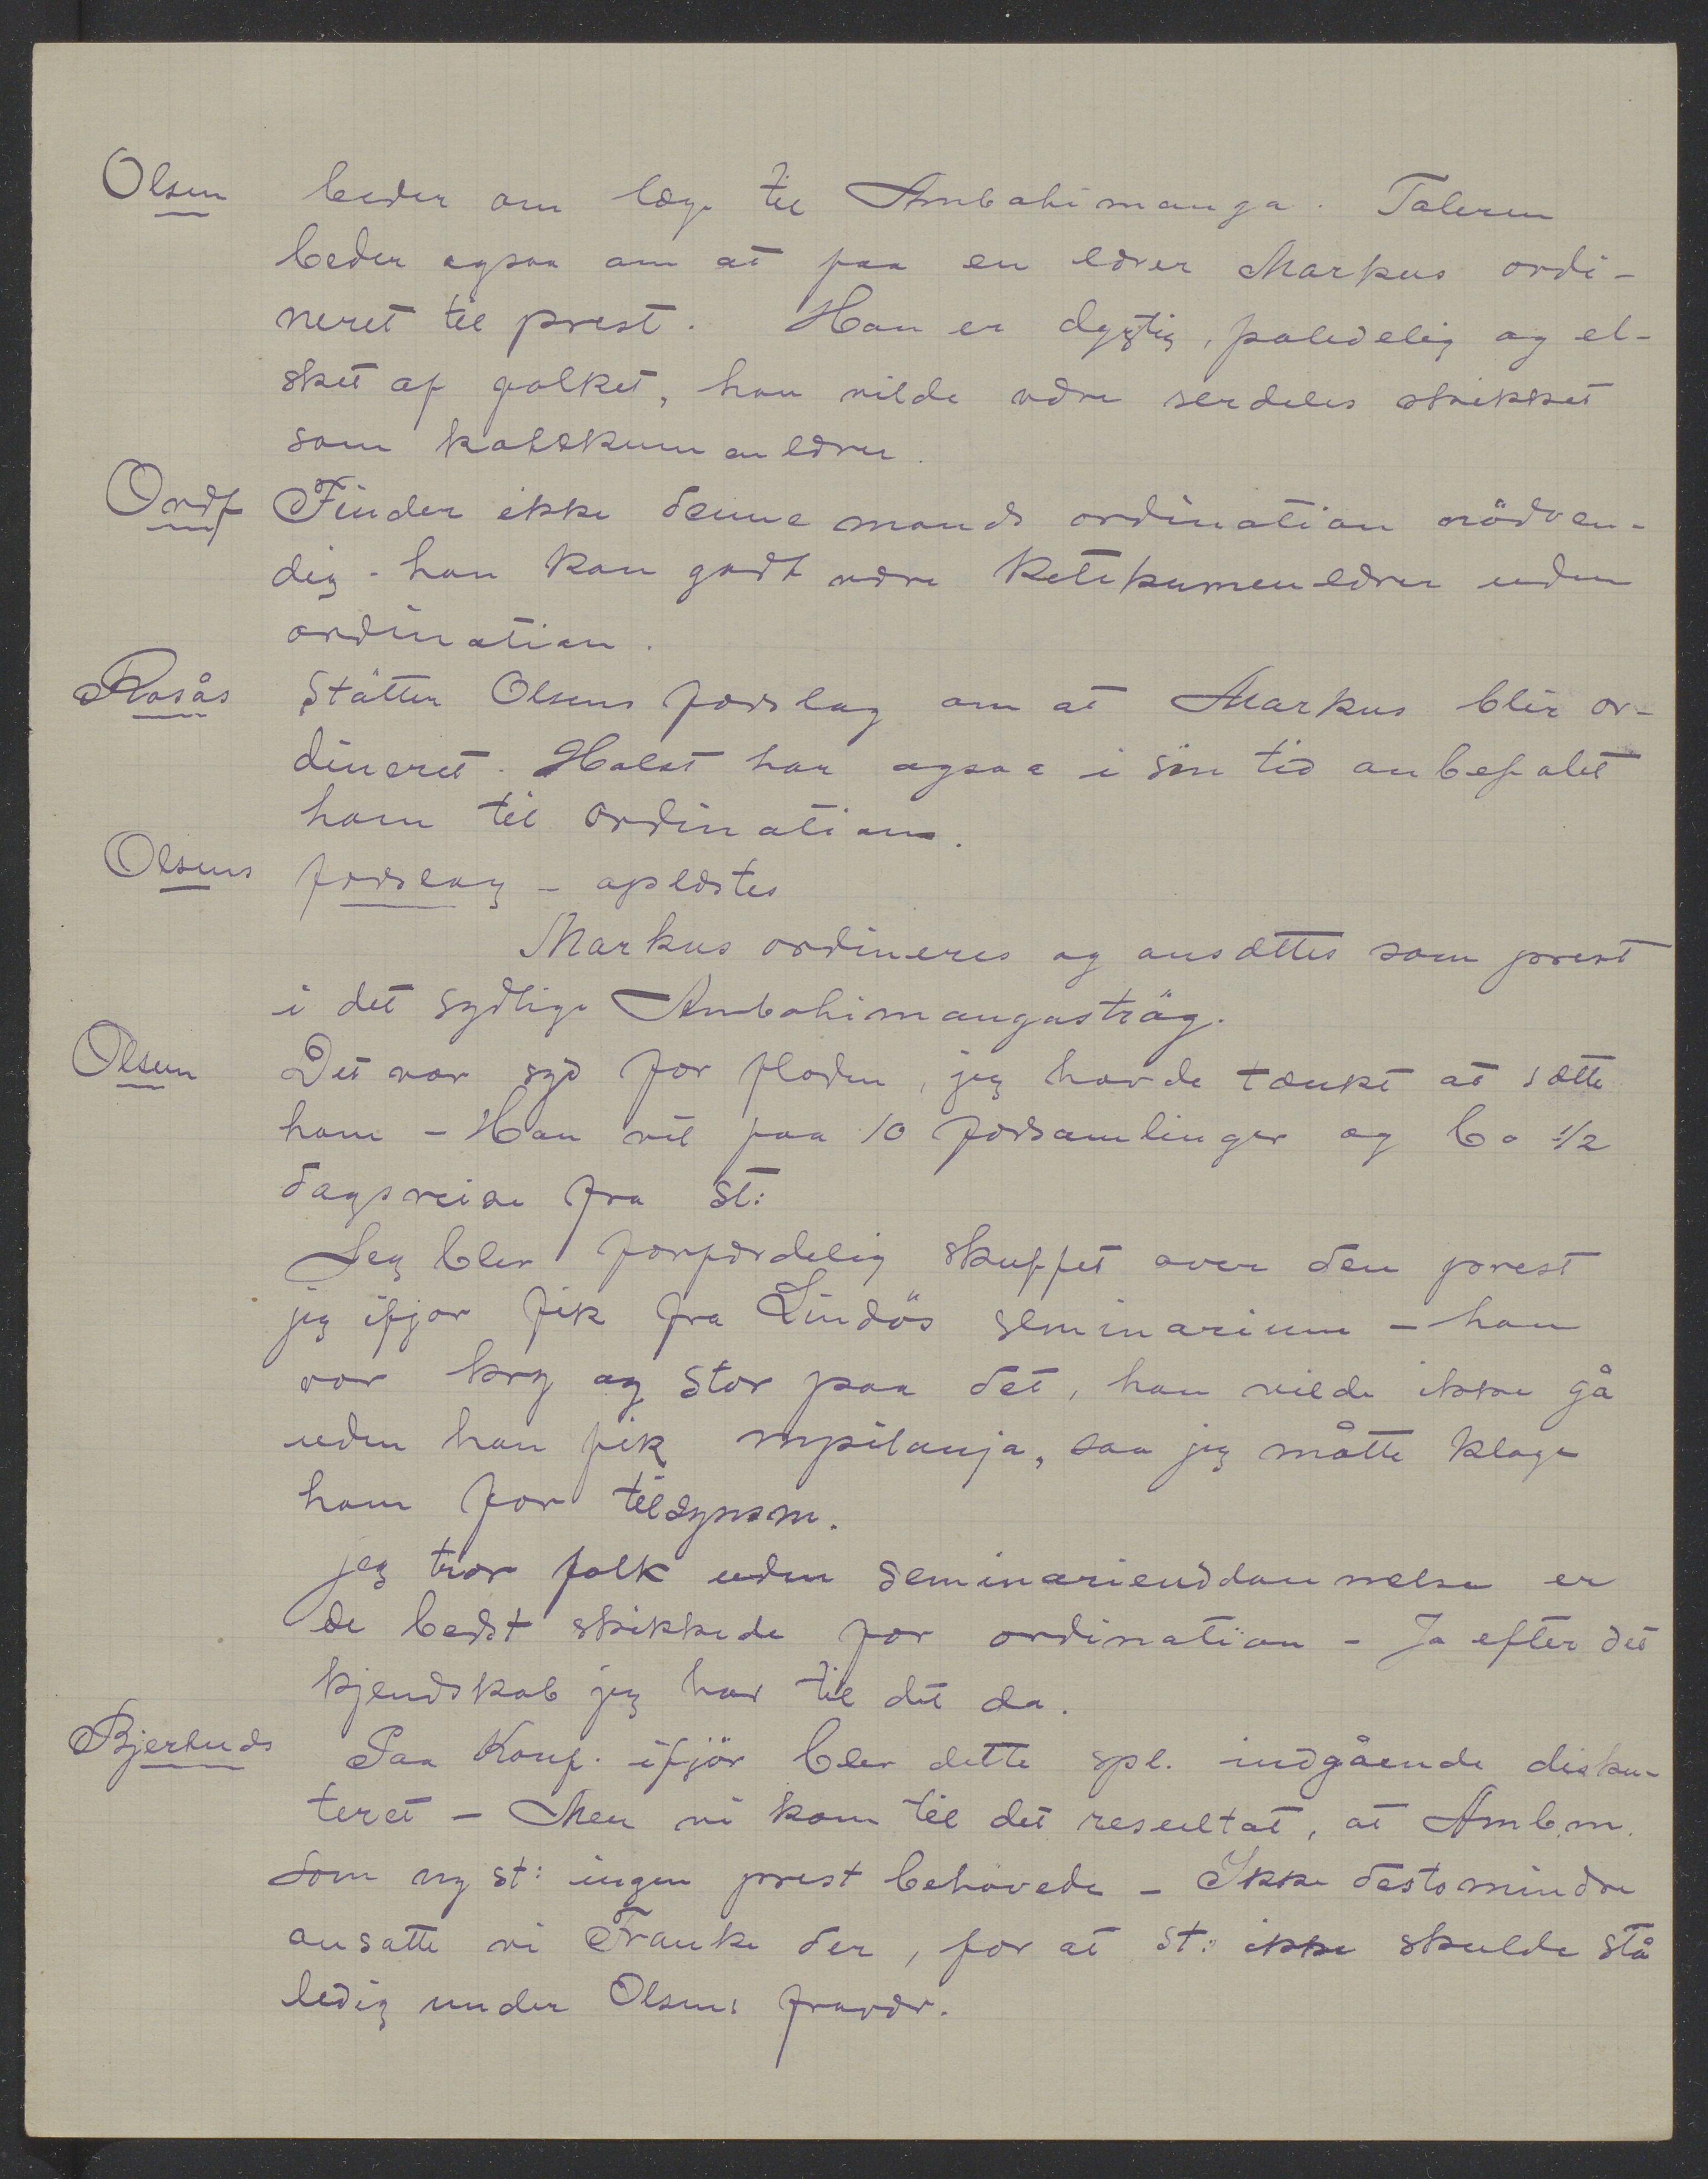 Olsen beder om læge til Ambohimanga. Taleren
beder ogsaa om at faa en lærer Markus ordi-
neret til prest. Han er dygtig, paalidelig og el-
sket af folket, han vilde være serdeles skikket
som katekumenlærer.
Ordf Finder ikke denne mands ordination nödven-
dig - han kan godt være Ketekumenlærer uden
ordination.
Rosås Stötter Olsens forslag om at Markus blir or-
dineret. Holst har ogsaa i sin tid anbefalet
ham til ordination.
Olsens forslag - oplæstes
Markus ordineres og ansættes som prest
i det sydlige Ambohimangaströg.
Olsen Det var syd for floden, jeg havde tænkt at sætte
ham - Han vil faa 10 forsamlinger og bo 1/2
dagsreise fra St:
Jeg blev forfærdelig skuffet over den prest
jeg ifjor fik fra Lindös seminarium - han
var kry og stor paa det, han vilde ikke gå
uden han fik mpilanja, saa jeg måtte klage
ham for tilsynsm.
jeg tror folk uden seminarieuddannelse er
de bedst skikkede for ordination - Ja efter det
kjendskab jeg har til det da.
Bjertnes Paa Konf. ifjör blev dette spl. indgående disku-
teret - Men vi kom til det resultat, at Amb.m.
som ny st: ingen prest behövede - Ikke destomindre
ansatte vi Frank der, for at St: ikke skulde stå
ledig under Olsens fravær.